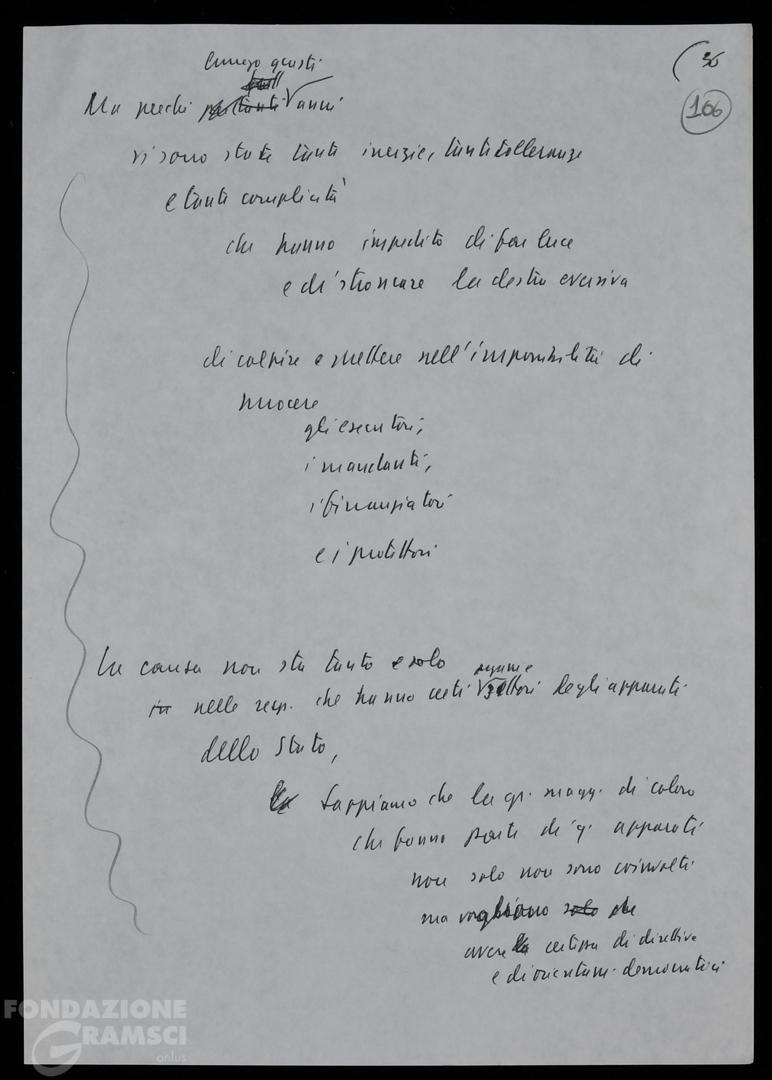 (36
166
lungo questi
Ma perché per tanti anni
vi sono state tante inerzie, tante tolleranze
e tante complicità
che hanno impedito di far luce
e di stroncare la destra eversiva
di colpire e mettere nell'impossibilità di
nuocere
gli esecutori,
i mandanti,
i finanziatori
e i protettori
La causa non sta tanto e solo
in nelle resp. che hanno certi settori degli apparati
dello Stato,
Sappiamo che la gr. magg. di coloro
che fanno parte di q. apparati
non solo non sono coinvolti
ma vogliono solo che
avere la certezza di direttive
e di orientam. democratici
FONDAZIONE
GRAMSCI
onlus